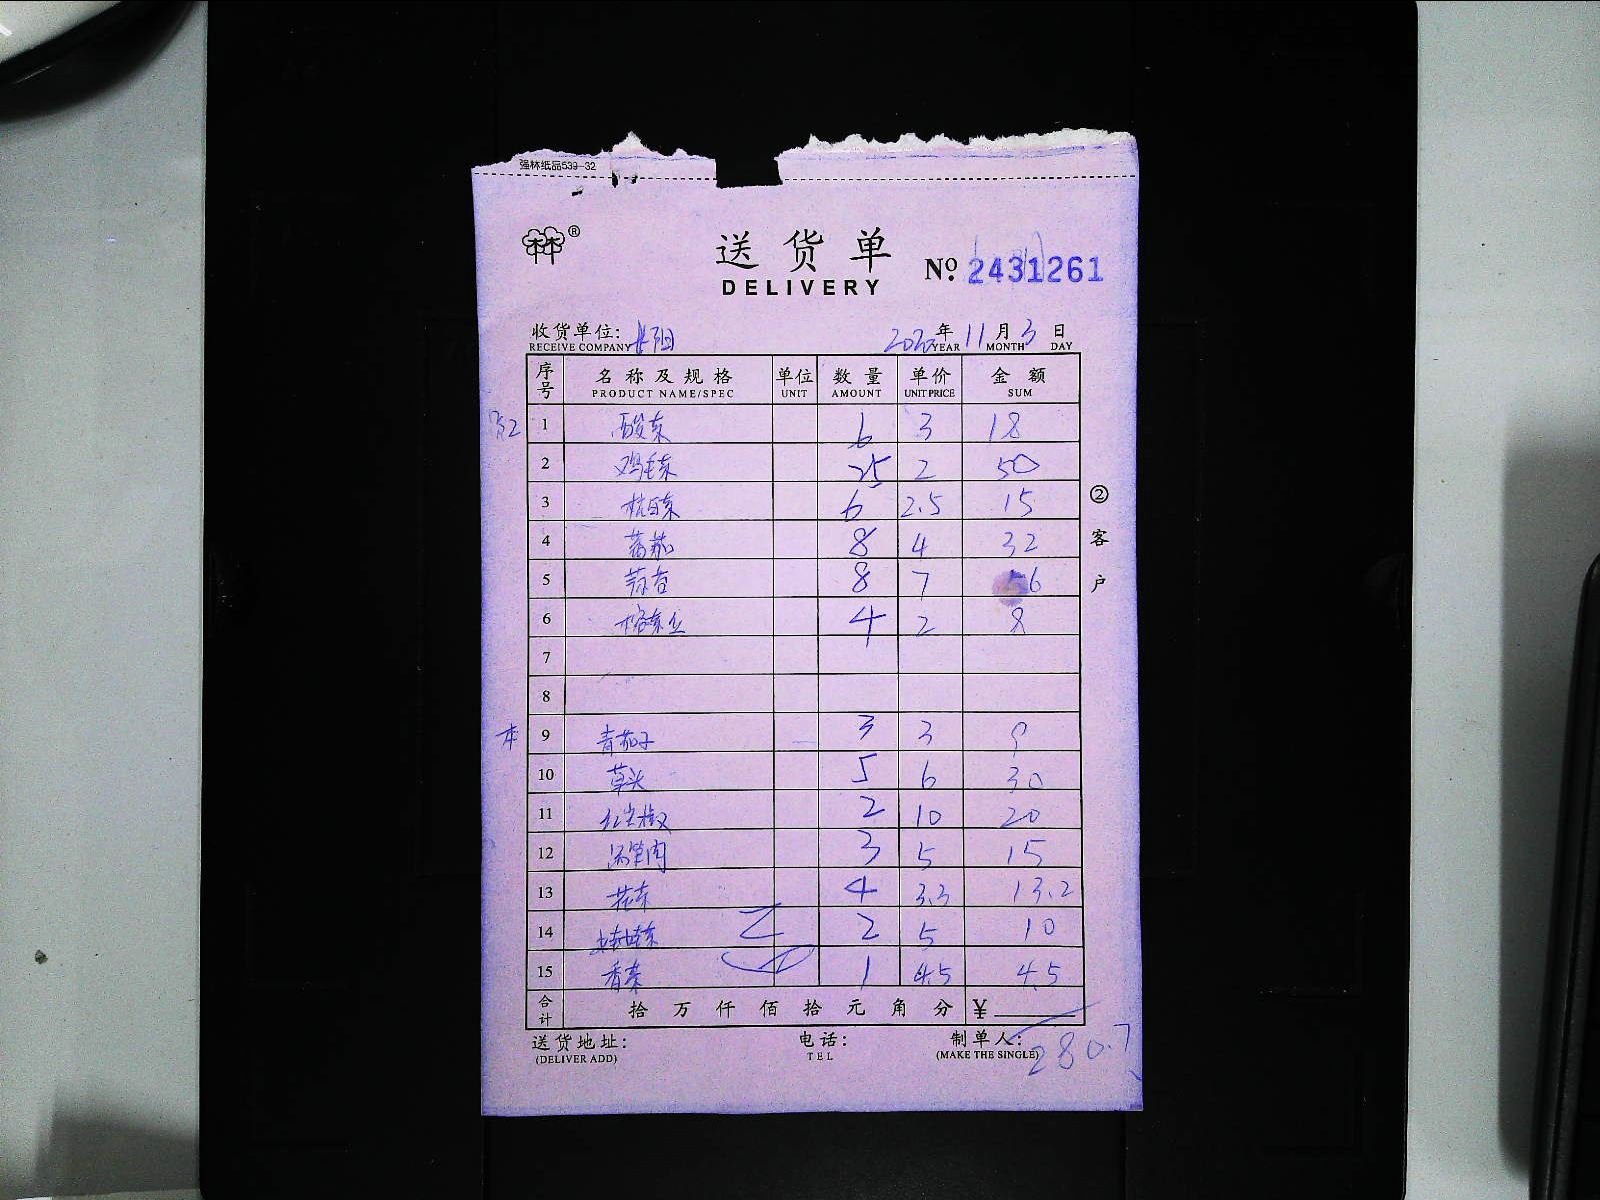 强林纸品539-32
林®
送货单
DELIVERY
No. 2431261
收货单位: 长阳 2020年11月3日
RECEIVE COMPANY YEAR MONTH DAY
序号 名称及规格 单位 数量 单价 金额
PRODUCT NAME/SPEC UNIT AMOUNT UNIT PRICE SUM
1 酸菜 6 3 18
2 鸡毛菜 25 2 50
3 杭白菜 6 2.5 15
4 蕃茄 8 4 32
5 蒜苔 8 7 56
6 4 2 8
7
8
本 9 青茄子 3 3 9
10 草头 5 6 30
11 红尖椒 2 10 20
12 3 5 15
13 花菜 4 3.3 13.2
14 2 5 10
15 香菜 1 4.5 4.5
合计 拾万仟佰拾元角分 ¥
280.7
送货地址: 电话: 制单人:
(DELIVER ADD) TEL (MAKE THE SINGLE)
②客户